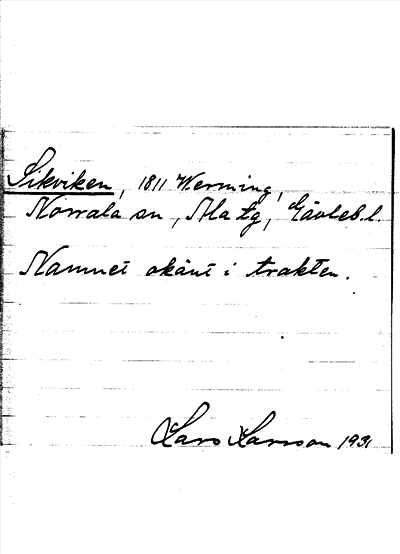 Sikviken, 1811 Werming,
Norrala sn, Ala tg, Gävleb.l.
Namnet okänt i trakten.
Lars Larsson 1931